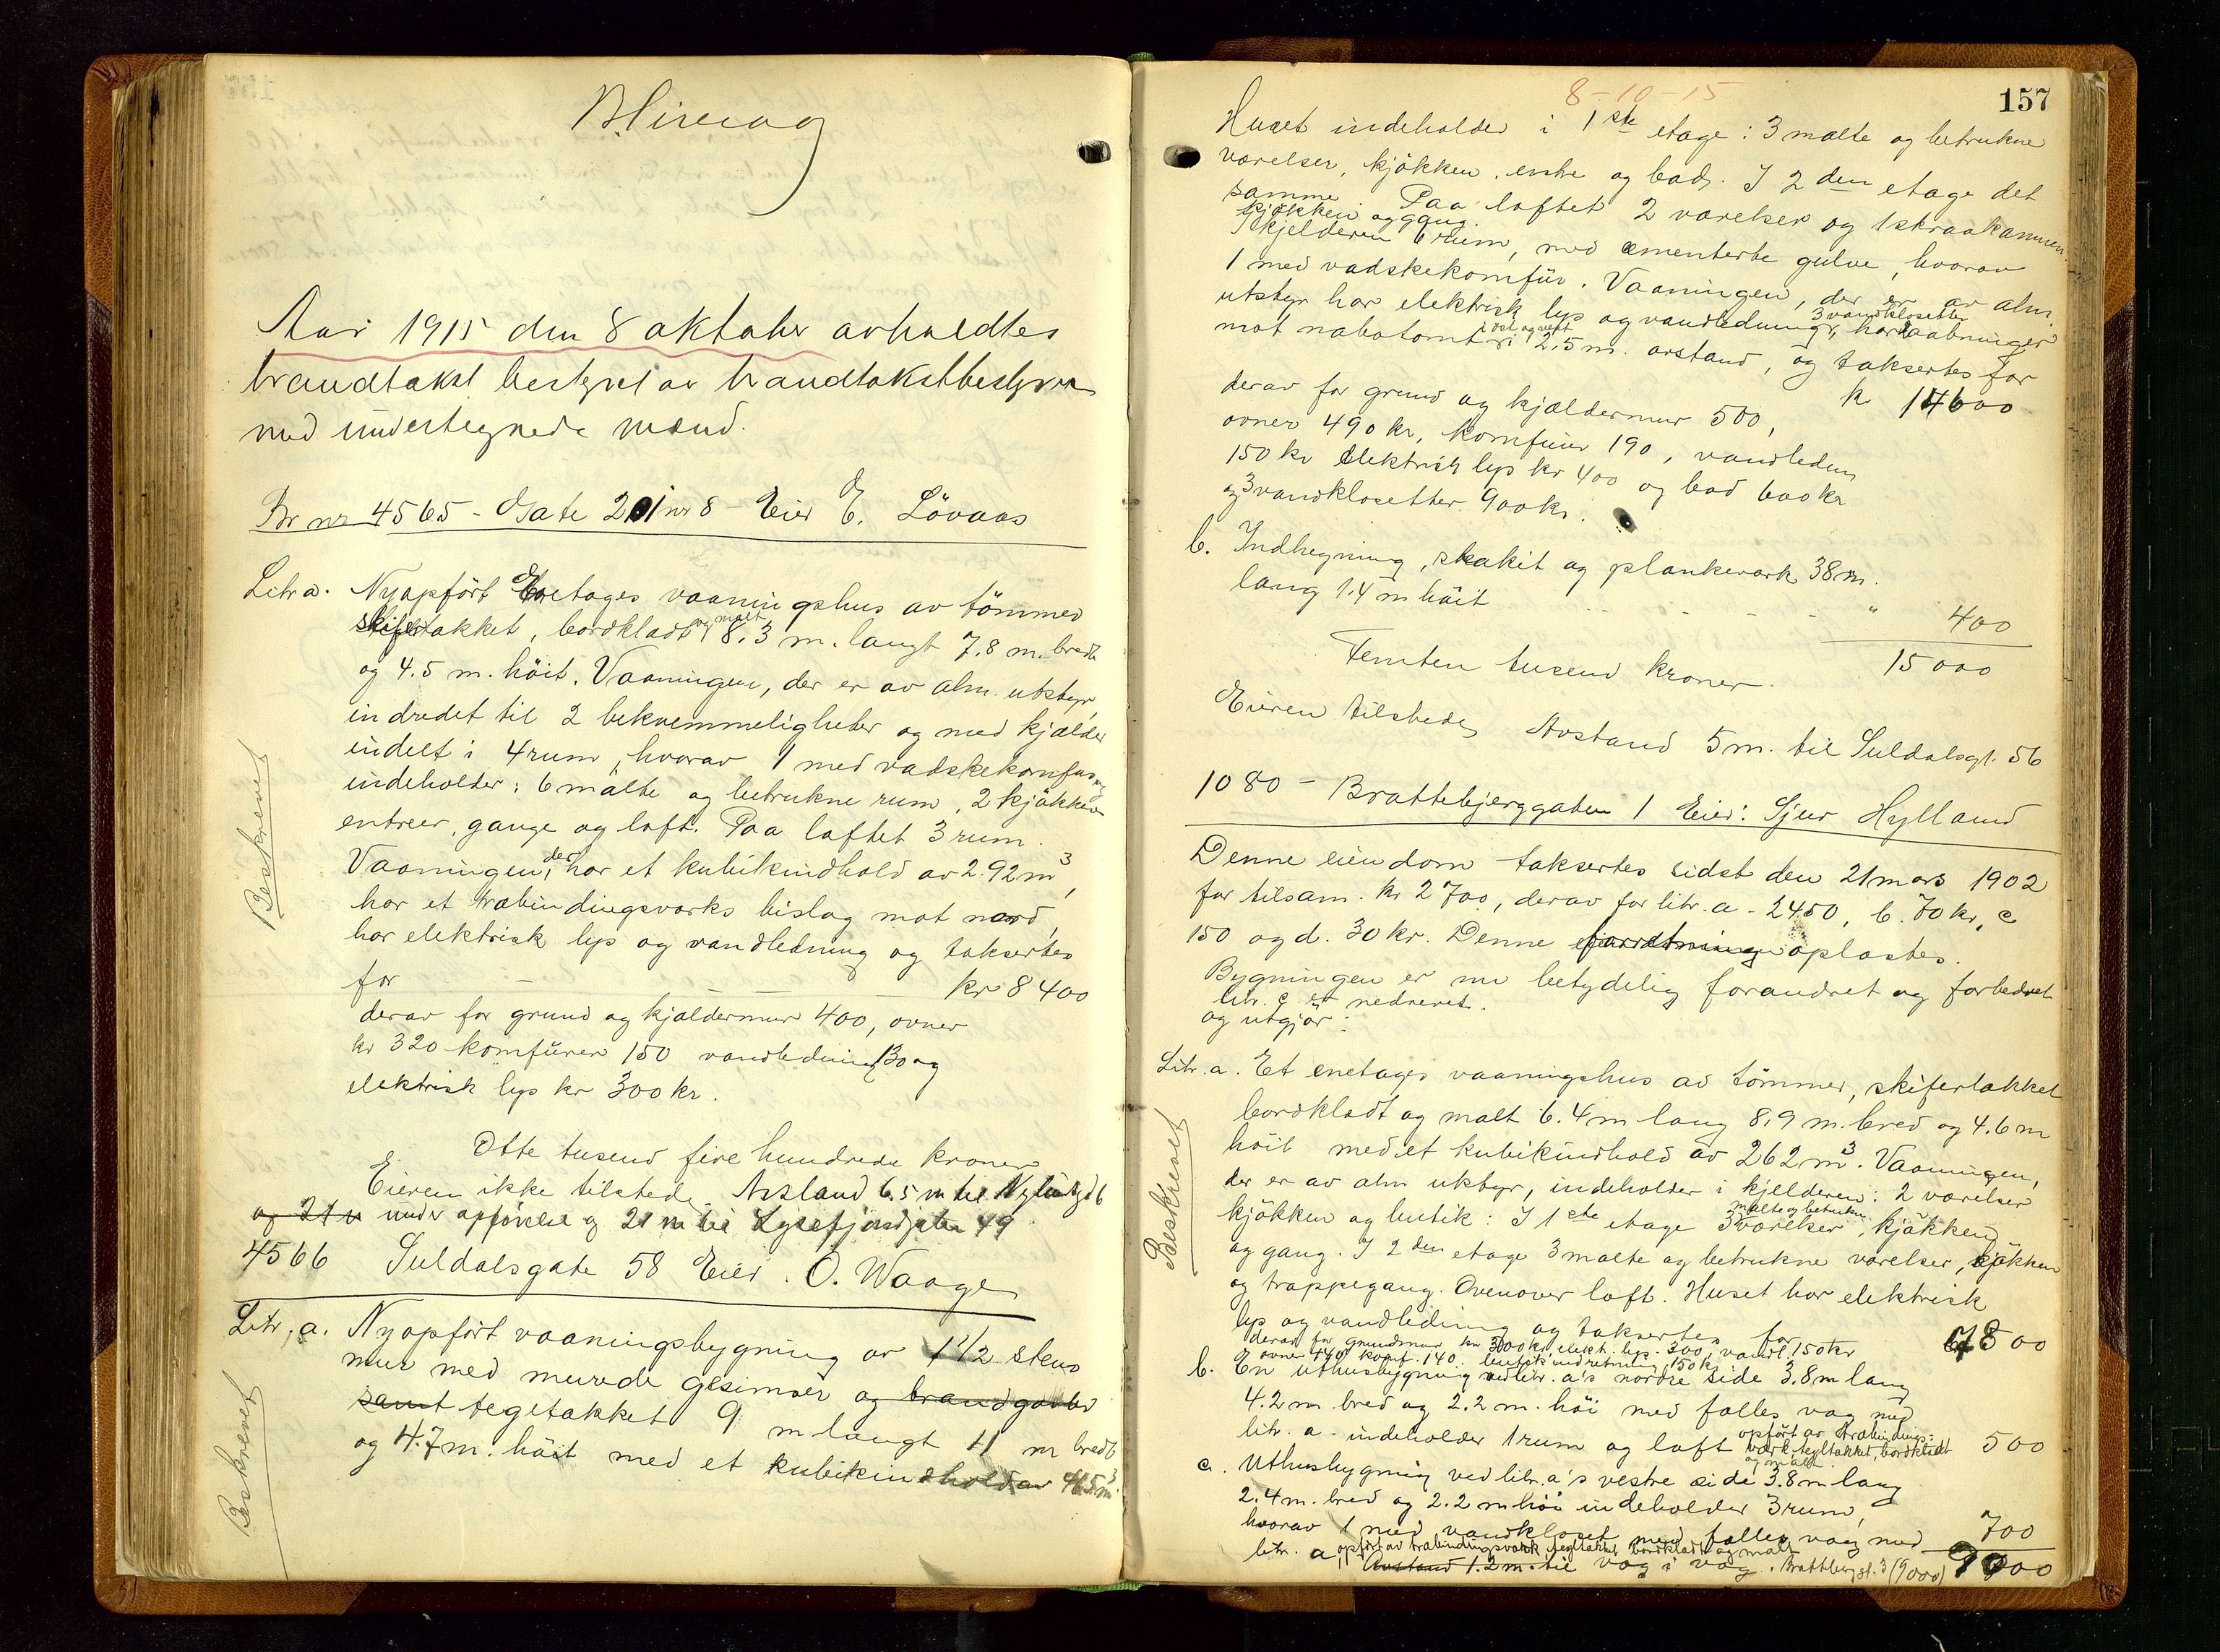 Aar 1915 den 8 oktober avholdtes
brandtakst bestyret av brandtakstbestyreren
med undertegnede mænd.
Br nr 4565 - Gate 201 nr 8 - Eier E. Lövaas
Litr a. Nyopfört Enetages vaaningshus av tömmer
skifertakket, bordklædt og malt 8.3 m. langt 7.8 m. bredt
og 4.5 m. höit. Vaaningen, der er av alm. utstyr,
indredet til 2 bekvemmeligheter og med kjælder
indelt i 4 rum, hvorav 1 med vadskekomfur og
indeholder: 6 malte og betrukne rum, 2 kjökkener
entreer, gange og loft. Paa loftet 3 rum.
Vaaningen, der har et kubikindhold av 292 m³,
har et træbindingsverks bislag mot nord,
har elektrisk lys og vandledning og taksertes
for - - - - kr 8400
derav for grund og kjældermur 400, ovner
kr 320 komfürer 150 vandledning 130 og
elektrisk lys kr 300 kr.
Beskrevet
Otte tusend fire hundrede kroner
Eieren ikke tilstede. Avstand 6.5 m til
og 21 m under opförelse og 21 m til Lysefjordgaten 49
4566 Suldalsgate 58 Eier. O. Waage
Litr. a. Nyopfört vaaningsbygning av 1 1/2 stens
mur med murede gesimser og brandgavler
samt tegltakket 9 m langt 11 m bredt
og 4.7 m. höit med et kubikindhold av 465 m³.
Beskrevet
8-10-15
157
Huset indeholder i 1ste etage: 3 malte og betrukne
værelser, kjökken, entre og bad. I 2den etage det
samme Paa loftet 2 værelser og 1 skraakammer
kjøkken og gang.
I kjelderen 6 rum, med cementerte gulve, hvorav
1 med vadskekomfür. Vaaningen, der er av alm.
utstyr har elektrisk lys og vandledning, 3 vandklosetter har aabninger
mot nabotomt i öst og vest i 2,5 m. avstand, og taksertes for
k 14600
derav for grund og kjældermur 500,
ovner 490 kr, komfuur 190, vandledn
150 kr elektrisk lys kr 400 og bad 600 kr
og 3 vandklosetter 900 kr.
b. Indhegning, stakit og plankeværk 38 m.
lang 1.4 m höit - - - - " 400
15000
Femten tusend kroner.
Eieren tilstede, Avstand 5 m. til Suldalsgt. 56
1080 - Brattebjerggaten 1 Eier: Sjur Hylland
Denne eiendom taksertes sidst den 21 mars 1902
for tilsam. kr 2700, derav for litr. a - 2450, b. 70 kr, c
150 og d. 30 kr. Denne forretning oplæstes.
Bygningen er nu betydelig forandret og forbedret
litr. c er nedrevet.
og utgjör:
Litr. a. Et enetages vaaningshus av tömmer, skifertakket
bordklædt og malt 6.4 m lang 8,9 m. bred og 4.6 m
höit med et kubikindhold av 262 m³. Vaaningen,
der er av alm utstyr, indeholder i kjelderen: 2 værelser
kjökken og butik: I 1ste etage 3 malte og betrukne værelser, kjøkken
og gang. I 2den etage 3 malte og betrukne værelser, kjøkken
og trappegang. Ovenover loft. Huset har elektrisk
lys og vandledning og taksertes for 7800
derav for grundmur kr 300 kr, elekt. lys. 300, vandl. 150 kr
ovner 140 komf. 140. butikindretning 150 kr
b. En uthusbygning ved litr. a's nordre side 3.8 m lang
4.2 m. bred og 2.2 m. höi med fælles væg med
litr. a - indeholder 1 rum og loft opfört av træbindings-
værk tegltakket, bordklædt 500
og malt
c. Uthusbygning ved litr. a's vestre side 3.8 m lang
2.4 m. bred og 2.2 m höi indeholder 3 rum,
hvorav 1 med vandkloset med fælles væg med 700
litr. a, opfört av træbindingsværk tegltakket bordklædt og malt
Avstand 1.2 m. til væg i væg. Brattbergt. 3 (9000) 9000
Beskrevet